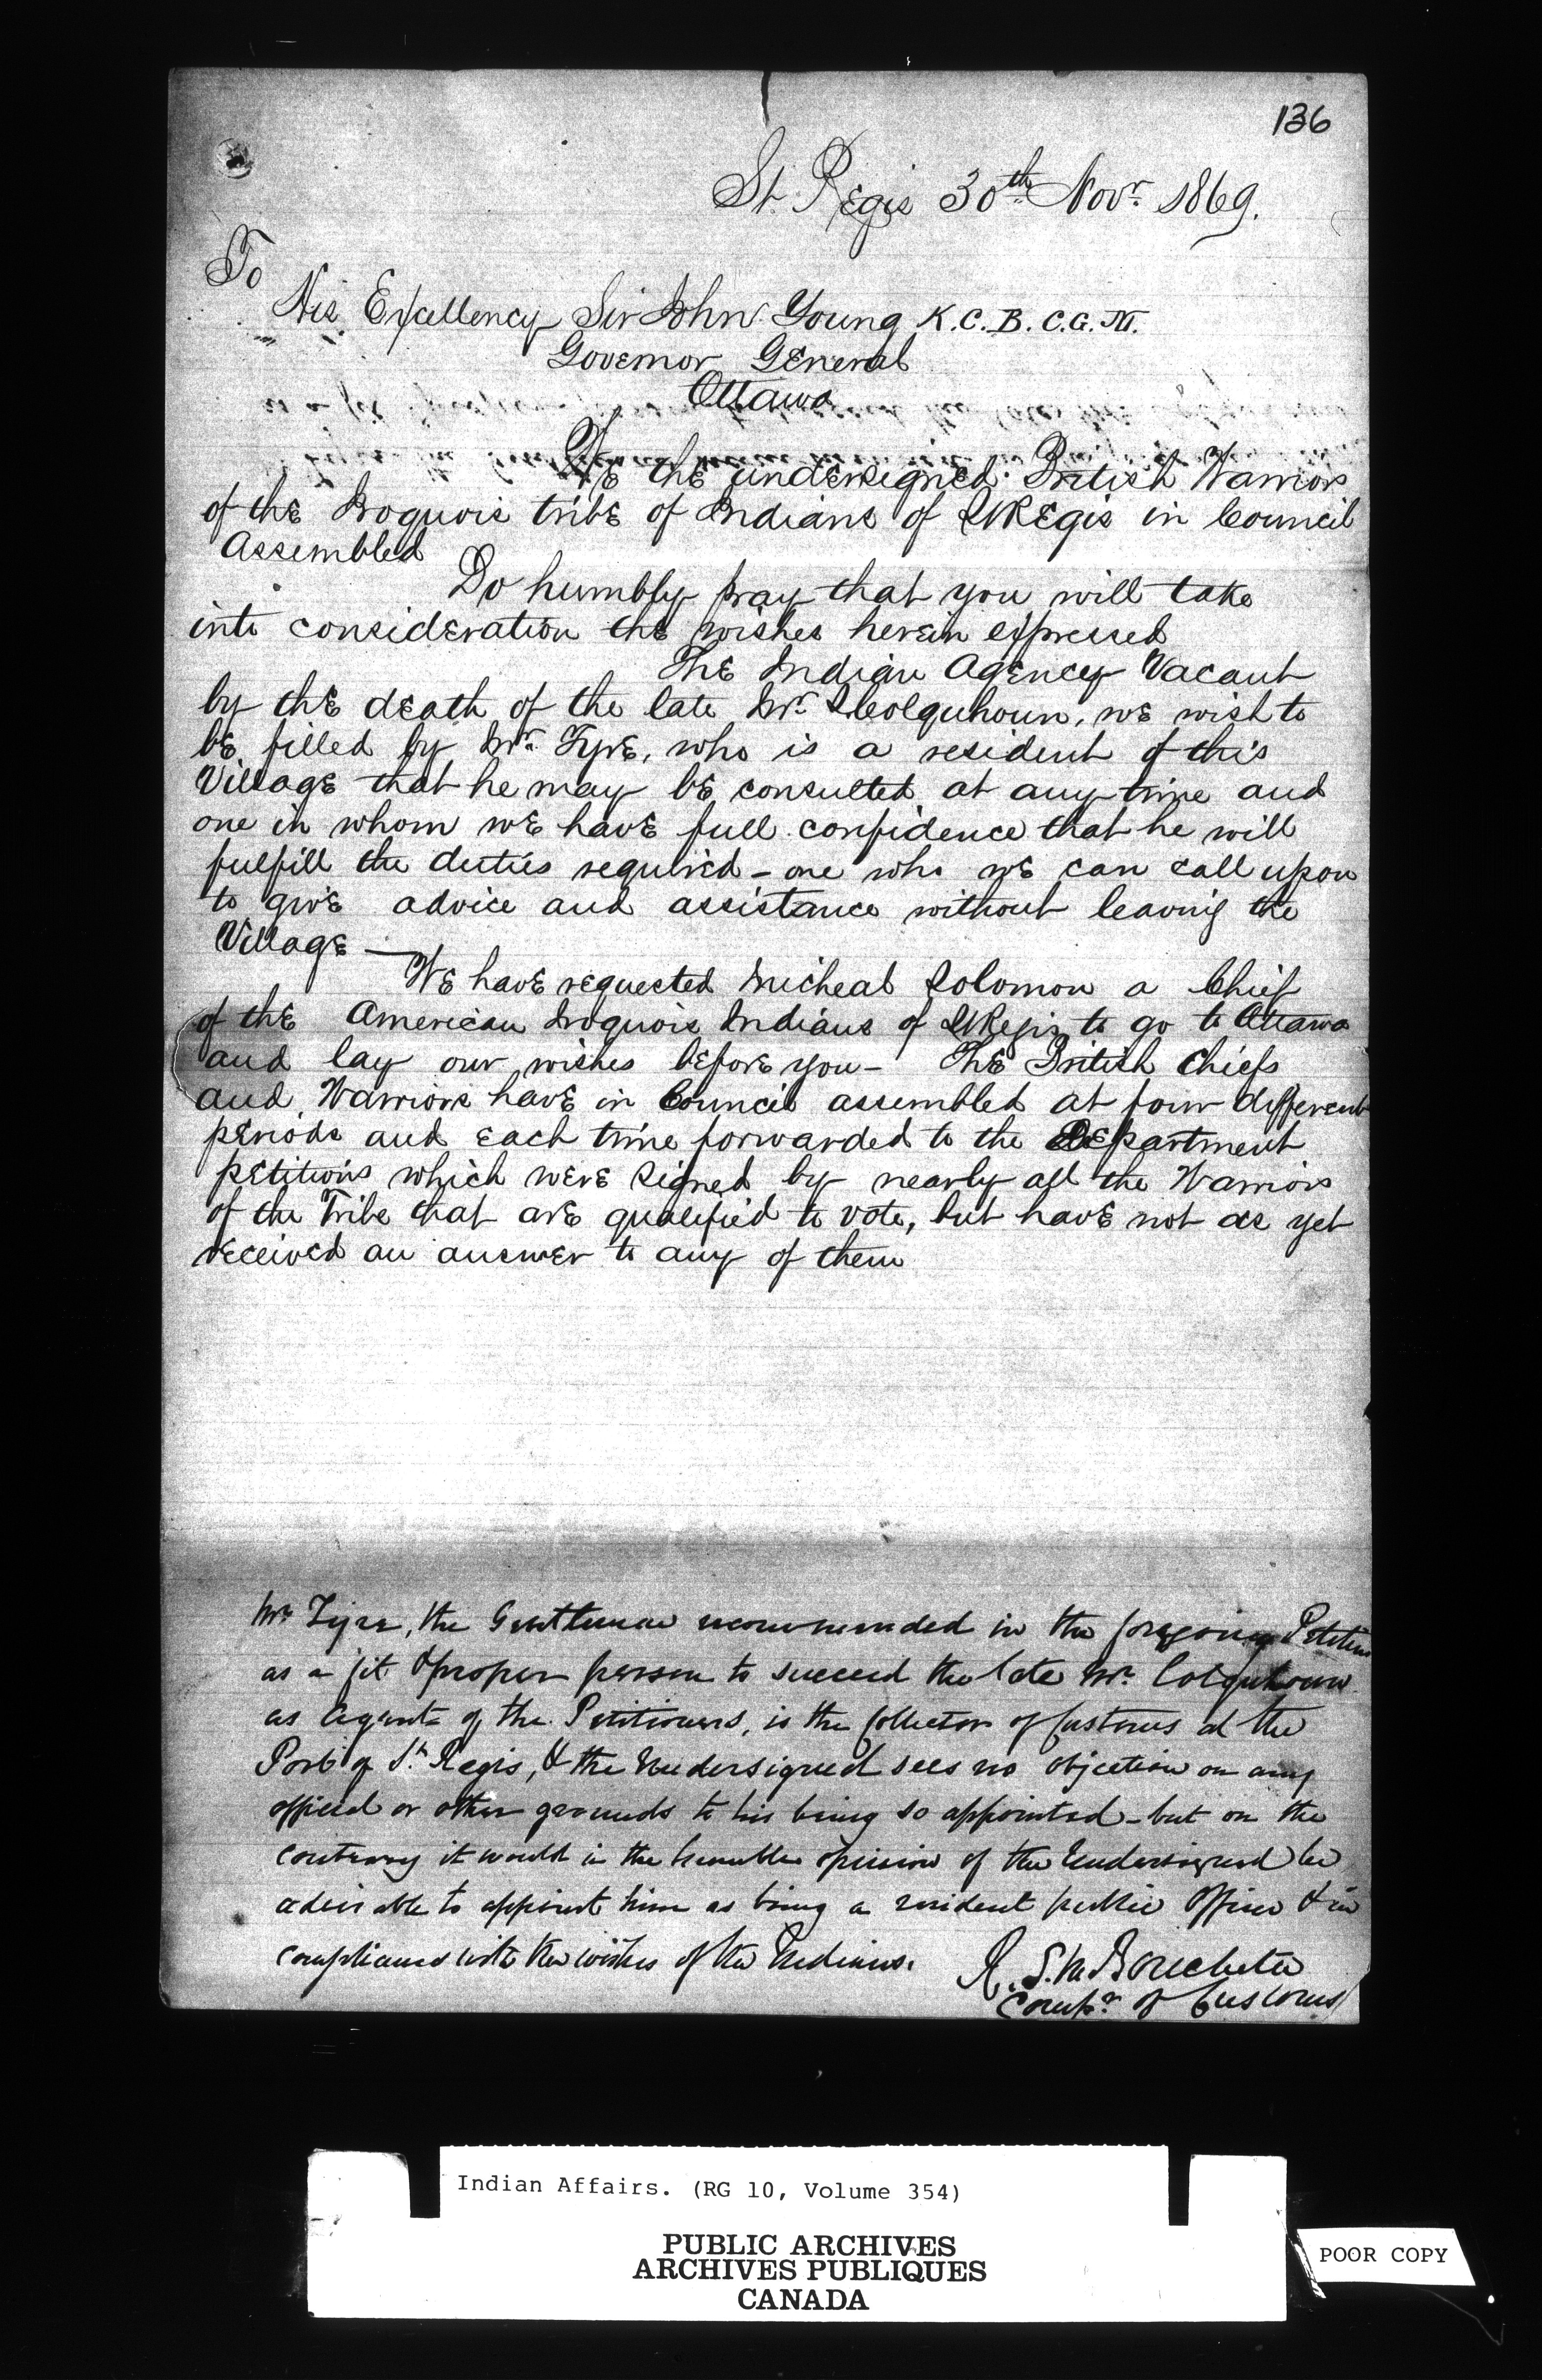 136
St. Regis 30th Novr. 1869.
To
His Excellency Sir John Young K.C.B. C.G.M.
Governor General
Ottawa
We the undersigned British Warriors
of the Iroquois tribe of Indians of St Regis in Council
Assembled
Do humbly pray that you will take
into consideration the wishes herein expressed
The Indian Agency Vacant
by the death of the late Mr. Colquhoun, we wish to
be filled by Mr. Tyre, who is a resident of this
Village that he may be consulted at any time and
one in whom we have full confidence that he will
fulfill the duties required - one who we can call upon
to give advice and assistance without leaving the
Village —
We have requested Micheal Solomon a Chief
of the American Iroquois Indians of St Regis to go to Ottawa
and lay our wishes before you - The British Chiefs
and Warriors have in Council assembled at four different
periods and each time forwarded to the Department
petitions which were signed by nearly all the Warriors
of the Tribe that are qualified to vote, but have not as yet
received an answer to any of them
Mr Tyre, the Gentleman recommended in the foregoing Petition
as a fit & proper person to succeed the late Mr. Colquhoun
as Agent of the Petitioners, is the Collector of Customs at the
Port of St. Regis, & the Undersigned sees no objection on any
official or other grounds to his being so appointed - but on the
contrary it would in the humble opinion of the Undersigned be
advisable to appoint him as being a resident public Officer & in
compliance with the wishes of the Indians.
R. S. M. Bouchette
Commr. of Customs
Indian Affairs. (RG 10, Volume 354)
PUBLIC ARCHIVES
ARCHIVES PUBLIQUES
CANADA
POOR COPY